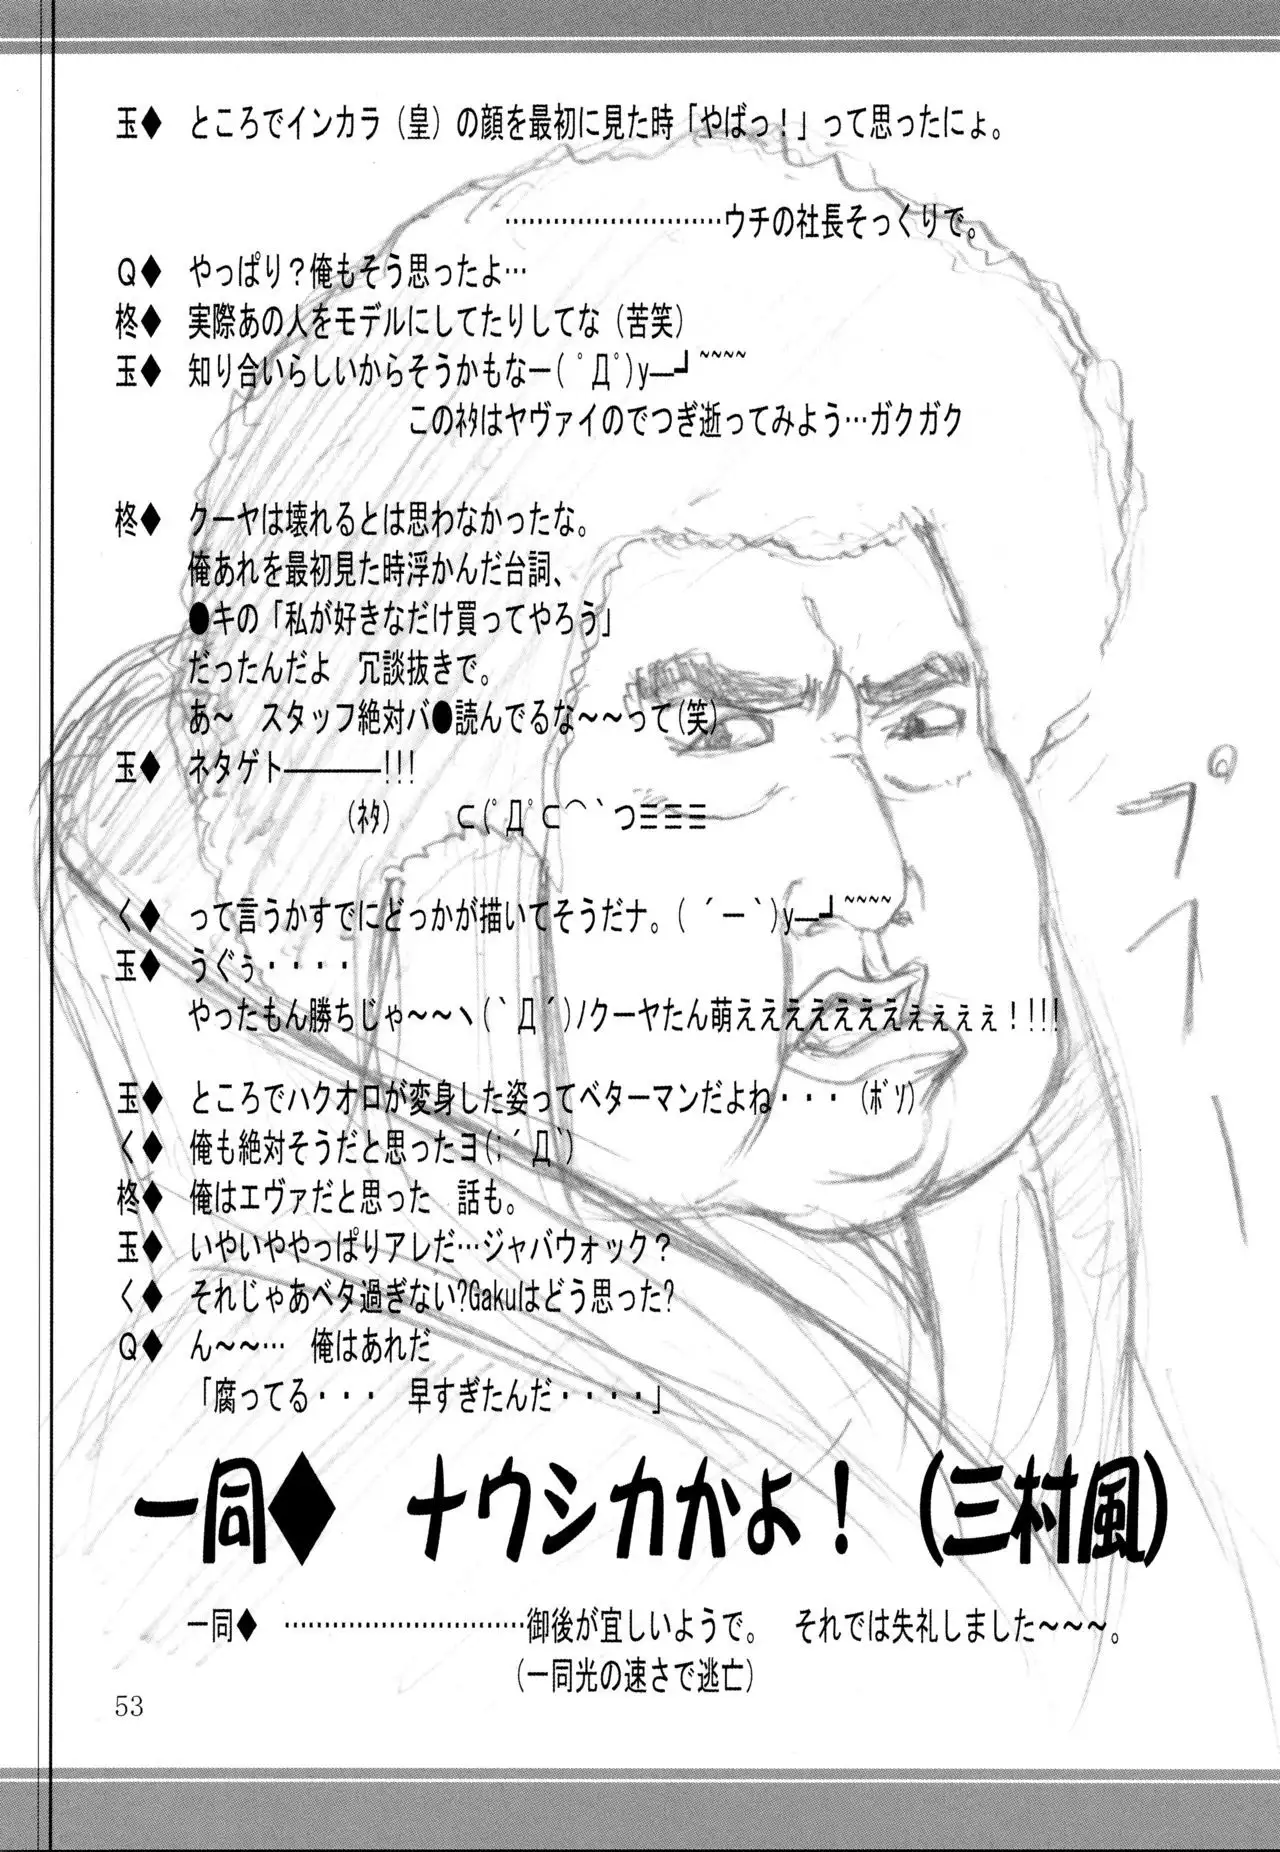 玉◆　ところでインカラ（皇）の顔を最初に見た時「やばっ！」って思ったにょ。
………………………ウチの社長そっくりで。
Ｑ◆　やっぱり？俺もそう思ったよ…
柊◆　実際あの人をモデルにしてたりしてな（苦笑）
玉◆　知り合いらしいからそうかもなー( ﾟДﾟ)y─┛~~~~
このﾈﾀはヤヴァイのでつぎ逝ってみよう…ガクガク
柊◆　クーヤは壊れるとは思わなかったな。
俺あれを最初見た時浮かんだ台詞、
●キの「私が好きなだけ買ってやろう」
だったんだよ　冗談抜きで。
あ～　スタッフ絶対バ●読んでるな～～って(笑)
玉◆　ネタゲト————!!!
（ﾈﾀ）　　⊂(ﾟДﾟ⊂⌒｀つ≡≡≡
く◆　って言うかすでにどっかが描いてそうだナ。( ´ー`)y─┛~~~~
玉◆　うぐぅ・・・・
やったもん勝ちじゃ～～ヽ(`Д´)ノクーヤたん萌えええええええぇぇぇぇ！!!!
玉◆　ところでハクオロが変身した姿ってベターマンだよね・・・（ﾎﾞｿ）
く◆　俺も絶対そうだと思ったヨ(;´Д`)
柊◆　俺はエヴァだと思った　話も。
玉◆　いやいややっぱりアレだ…ジャバウォック？
く◆　それじゃあベタ過ぎない?Gakuはどう思った?
Ｑ◆　ん～～…　俺はあれだ
「腐ってる・・・　早すぎたんだ・・・・」
一同◆　ナウシカかよ！（三村風）
一同◆　…………………………御後が宜しいようで。　それでは失礼しました～～～。
（一同光の速さで逃亡）
53
プアー